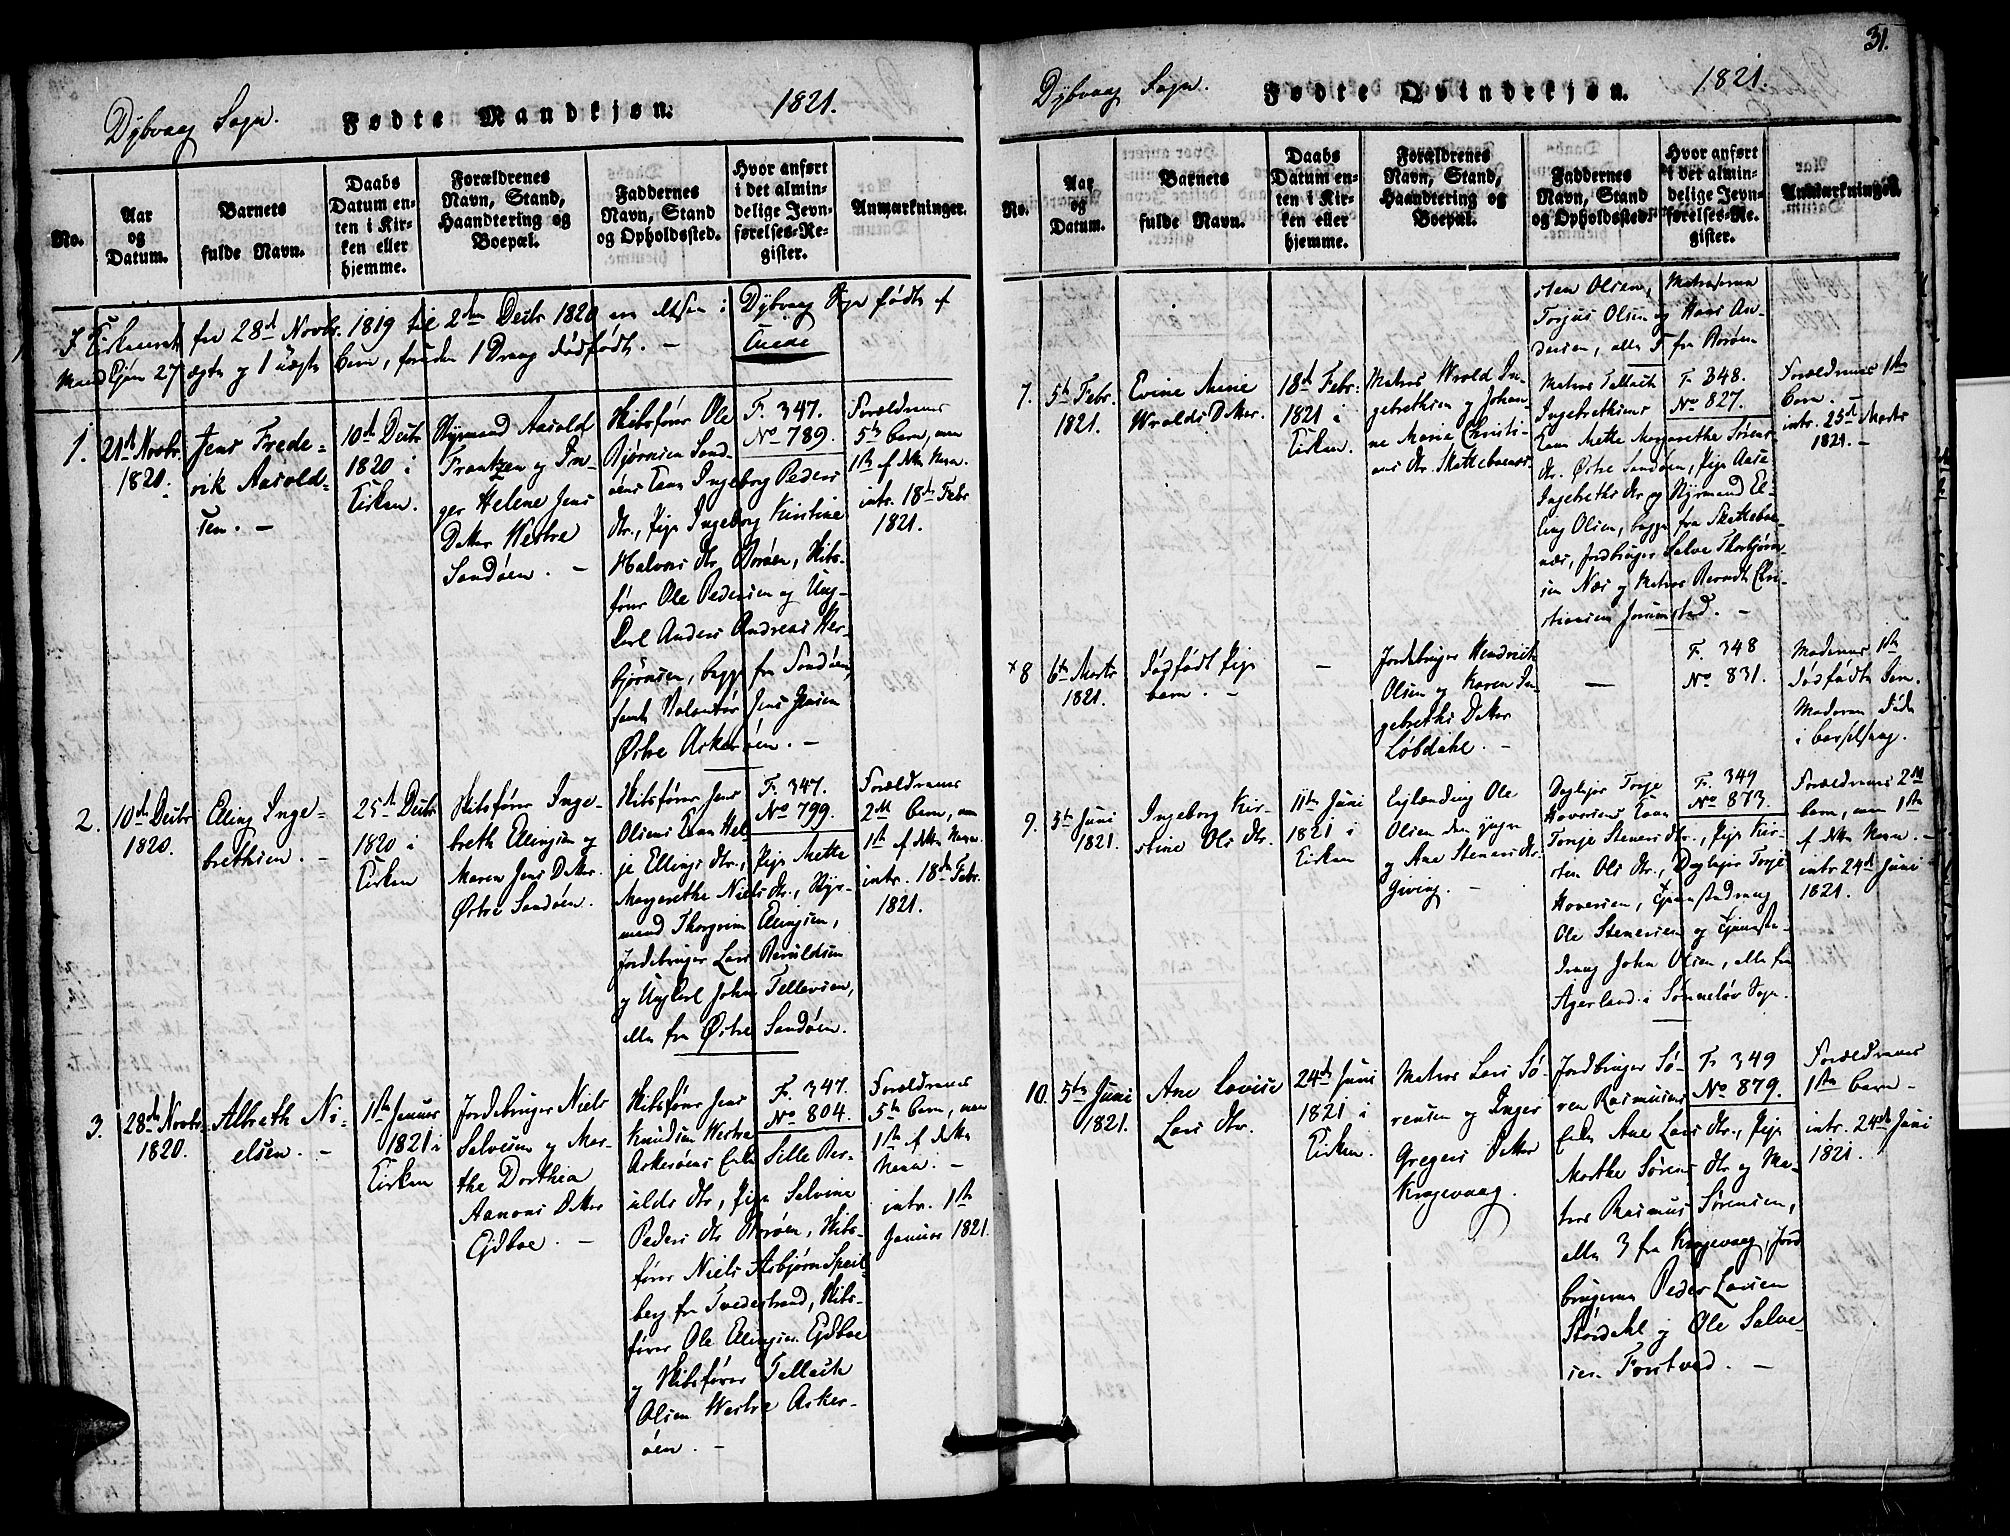 Dybvaag Sogn.
Fødte Mandkjøn.
1821.
No.
Aar
og
Datum.
Barnets
fulde Navn.
Daabs
Datum en-
ten i Kir-
ken eller
hjemme.
Forældrenes
Navn, Stand,
Haandtering og
Boepæl.
Faddernes
Navn, Stand
og Opholdssted.
Hvor anført
i det almin-
delige Jevn-
førelses-Re-
gister.
Anmærkninger.
I Kirkeaaret fra 28de Novbr. 1819 til 2den Decbr 1820 ere altsaa i Dybvaag Sogn fødte af
Mandkjøn 27 ægte og 1 uægte børn, foruden 1 Dreng dødfødt. —
1.
21de Novbr.
1820.
Jens Frede-
rik Aarold-
sen. —
10de Decbr
1820 i
Kirken.
Styrmand Aarold
Frantzen og In-
ger Helene Jens
Datter Westre
Sandøen. —
Skibsfører Ole
Bjørnsen Sand-
øens Kone Ingeborg Peders
dtr., Pige Ingeborg Kirstine
Halvors dtr. Borøen, Skibs-
fører Ole Pedersen og Ung-
karl Anders Andreas Her-
bjørnsen, begge fra Sandøen,
samt Jens Jensen
Østre Askerøen. —
F. 347.
No 789.
Forældrenes
5te barn, men
1ste af dette Navn.
intr. 18de Febr
1821.
2.
10de Decbr
1820.
Elling Inge-
brethsen. —
25de Decbr
1820 i
Kirken
Skibsfører Inge-
breth Ellingsen og
Maren Jens Datter
Østre Sandøen.
Skibsfører Jens
Olsens Kone Hel-
je Ellings dtr., Pige Mette
Margrethe Niels dtr., Styr-
mand Thorgrim Ellingsen,
Jordebruger Lars Beruldsen
og Ungkarl John Tellevsen,
alle fra Østre Sandøen.
F. 347.
No 799.
Forældrenes
2det barn, men
1ste af dette Navn.
intr. 18de Febr.
1821.
3.
28de Novbr.
1820.
Albreth Ni-
elsen. —
1ste Januar
1821 i
Kirken
Jordebruger Niels
Salvesen og Mar-
the Dorthea
Aanons Datter
Ejdboe. —
Skibsfører Jens
Knudsen Westre
Askerøens Enke Sille Ber-
ulds dtr, Pige Salvine
Peders dtr Borøen, Skibs-
fører Niels Asbjørn Speil-
berg fra Tvedestrand, Skibs-
fører Ole Ellingsen Ejdboe
og Skibsfører Tellach
Olsen Westre Asker-
øen. —
F. 347.
No 804.
Forældrenes
5te barn, men
1ste af dette
Navn. —
intr. 1ste
Januar 1821.
31.
Dybvaag Sogn.
Fødte Qvindekjøn.
1821.
No.
Aar
og
Datum.
Barnets
fulde Navn.
Daabs
Datum en-
ten i Kir-
ken eller
hjemme.
Forældrenes
Navn, Stand,
Haandtering og
Boepæl.
Faddernes
Navn, Stand
og Opholdssted.
Hvor anført
i det almin-
delige Jevn-
førelses-Re-
gister.
Anmærkninger.
sten Olsen, Matroserne
Torjus Olsen og Hans An-
dersen, alle fra Borøen
7.
5te Febr.
1821.
Evine Marie
Wrolds Datter.
18de Febr.
1821 i
Kirken.
Matros Wrold In-
gebrethsen og Johan-
ne Marie Christi-
ans dtr. Skatteboenæs.
Matros Tellach
Ingebrethsens
Kone Mette Margrethe Sørens
dtr. Østre Sandøen, Pige Aase
Ingebreths dtr og Styrmand El-
ling Olsen, begge fra Skatteboe-
næs, Jordbruger Salve Thorbjørn-
sen Næs og Matros Berndt Chri-
stiansen Jorumstad. —
F. 348.
No 827.
Forældrenes 1ste
barn. —
intr. 25de Marts
1821. —
× 8
6te Marts
1821.
dødfødt Pige
barn. —
—
Jordebruger Hendrich
Olsen og Karen In-
gebreths Datter
Løbdahl. —
—
F. 348
No 831.
Moderens 1ste
dødfødte barn.
Moderen døde
i barselseng.
9.
3die Juni
1821.
Ingeborg Kir-
stine Ols dtr.
11te Juni
1821 i
Kirken
Ole
Olsen den yngre
og Ane Steners dtr.
Giving. —
Daglejer Torje
Hoversens Kone
Torje Steners dtr., Pige Kir-
sten Ols dtr., Daglejer Torje
Hoversen, Tjenestedreng
Ole Stenersen og Tjeneste-
dreng John Olsen, alle fra
Agerland i Sønneløv Sogn.
F. 349
No 873.
Forældrenes 2det
barn, men 1ste
af dette Navn. —
intr 24de Juni
1821.
10.
5te Juni
1821.
Ane Lovise
Lars dtr.
24de Juni
1821 i
Kirken.
Matros Lars Sø-
rensen og Inger
Gregers Datter
Krogevaag.
Jordbruger Sø-
ren Rasmusens
Enke Ane Lars dtr., Pige
Marthe Sørens dtr og Ma-
tros Rasmus Sørensen,
alle 3 fra Krogevaag, Jord
brugerne Peder Larsen
Stordahl og Ole Salve-
sen Forstved. —
F. 349
No 879.
Forældrenes
1ste barn —
intr. 24de Juni
1821.